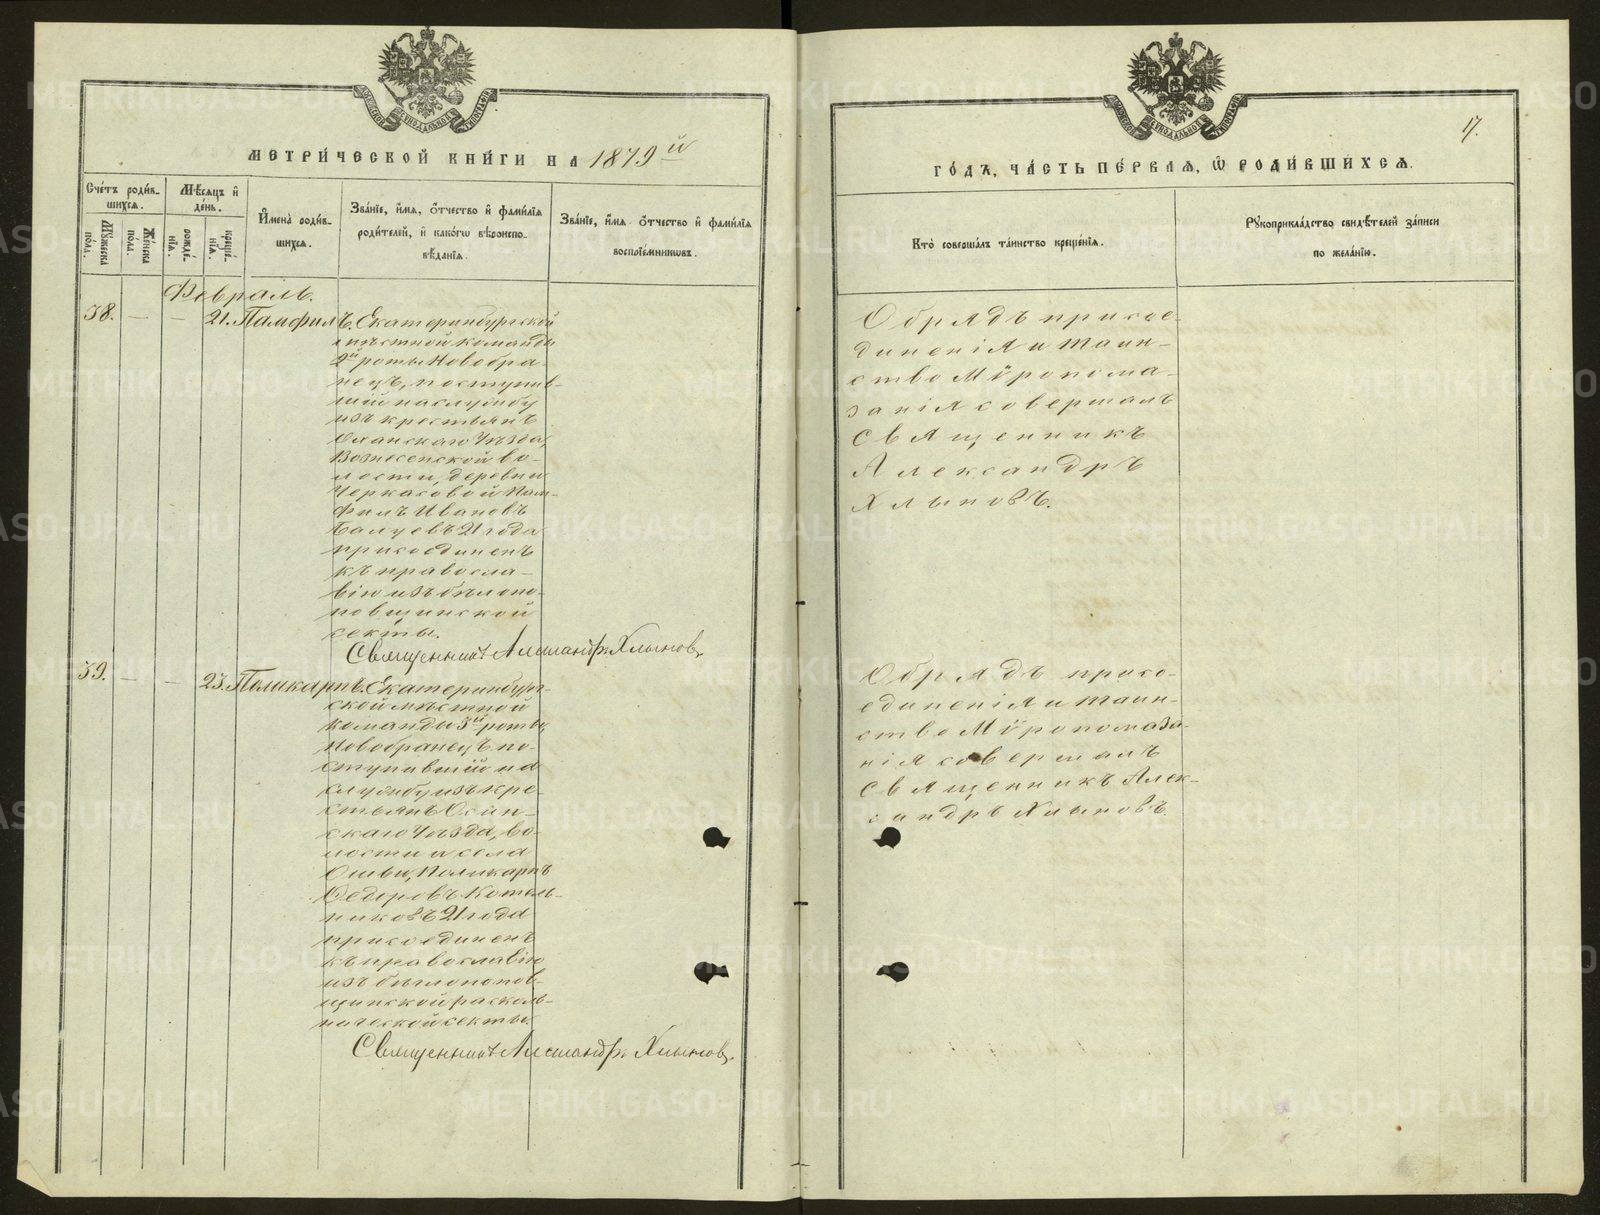 МЕТРИ́ЧЕСКОЙ КНИ́ГИ НА 1879й
Сче́тъ роди́в-
шихся.
Мѣ́сяцъ и҆
де́нь.
И҆мена̀ роди́в-
шихся.
Зва́нїе, и҆́мя, ѻ҆́тчество и҆ фами́лїя
роди́телей, и҆ како́гѡ вѣроиспо-
вѣ́данїя.
Зва́нїе, и҆́мя ѻ҆́тчество и҆ фами́лїя
воспрїе́мниковъ.
Му́жеска
по́ла.
Же́нска
по́ла.
рожде́-
нїя.
креще́-
нїя.
Февраль.
38. — — 21. Памфилъ.
Екатеринбургской
мѣстной команды
2й роты Новобра-
нецъ, поступив-
шій на службу
изъ крестьянъ
Оханскаго Уѣзда,
Вознесенской во-
лости, деревни
Черкасовой Пам-
филъ Ивановъ
Балуевъ 21 года
присоединенъ
къ правосла-
вію изъ бѣглопо-
повщинской
секты.
Священникъ Александръ Хлыновъ.
39. — — 23. Поликарпъ.
Екатеринбург-
ской мѣстной
команды 3й роты,
Новобранецъ по-
ступившій на
службу изъ кре-
стьянъ Осин-
скаго Уѣзда, во-
лости и села
Ошьи, Поликарпъ
Ѳедоровъ Котель-
никовъ 21 года
присоединенъ
къ православію
изъ бѣглопопов-
щинской расколь-
нической секты.
Священникъ Александръ Хлыновъ.
17.
ГО́ДЪ, ЧА́СТЬ ПЕ́РВАЯ, Ѡ҆ РОДИ́ВШИХСЯ.
Кто̀ соверша́лъ та́инство креще́нїя.
Рꙋкоприкла́дство свидѣ́телей за́писи
по жела́нїю.
Обрядъ присое-
диненія и таин-
ство Мѵропома-
занія совершалъ
Священникъ
Александръ
Хлыновъ.
Обрядъ присо-
единенія и таин-
ство Мѵропомаза-
нія совершалъ
Священникъ Алек-
сандръ Хлыновъ.
METRIKI.GASO-URAL.RU